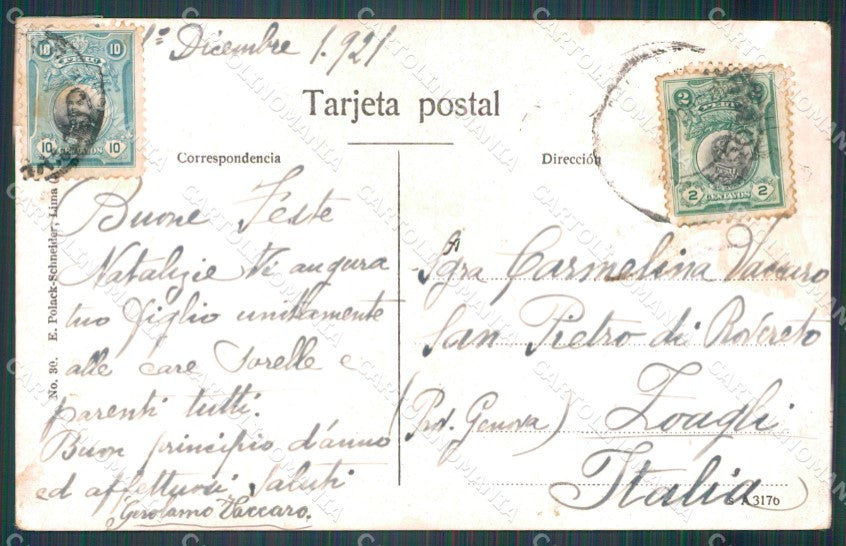 1º Dicembre 1.921
Tarjeta postal
Correspondencia
Dirección
Buone Feste
Natalizie Vi augura
tuo figlio unitamente
alle care sorelle e
parenti tutti.
Buon principio d'anno
ed affettuosi saluti
Gerolamo Vaccaro.
Sgra Carmelina Vaccaro
San Pietro di Rovereto
(Prov. Genova) Zoagli
Italia
A 3176
No. 30. E. Polack-Schneider, Lima
10 10
PERU
10 CENTAVOS 10
2 2
PERU
2 CENTAVOS 2
CARTOLINOMANIA